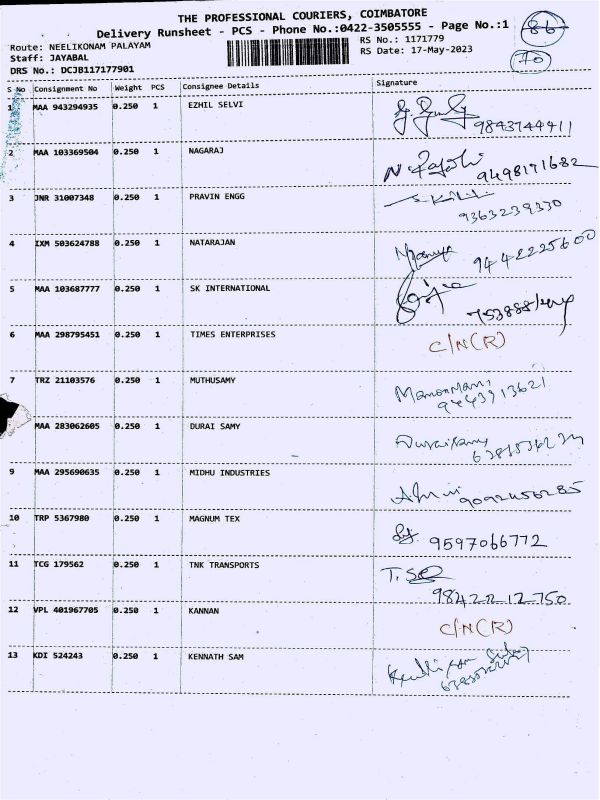 THE PROFESSIONAL COURIERS, COIMBATORE
Delivery Runsheet - PCS - Phone No.:0422-3505555 - Page No.:1 86
Route: NEELIKONAM PALAYAM RS No.: 1171779
Staff: JAYABAL RS Date: 17-May-2023 70
DRS No.: DCJB117177901
S No Consignment No Weight PCS Consignee Details Signature
1 MAA 943294935 0.250 1 EZHIL SELVI
9843744411
2 MAA 103369504 0.250 1 NAGARAJ
9498171682
3 JNR 31007348 0.250 1 PRAVIN ENGG
9363239330
4 IXM 503624788 0.250 1 NATARAJAN
9442225600
5 MAA 103687777 0.250 1 SK INTERNATIONAL
6 MAA 298795451 0.250 1 TIMES ENTERPRISES C/N(R)
7 TRZ 21103576 0.250 1 MUTHUSAMY Manonmani
9443913621
MAA 283062605 0.250 1 DURAI SAMY Duraisamy
9 MAA 295690635 0.250 1 MIDHU INDUSTRIES
9092456285
10 TRP 5367980 0.250 1 MAGNUM TEX
9597066772
11 TCG 179562 0.250 1 TNK TRANSPORTS
98422 12750
12 VPL 401967705 0.250 1 KANNAN C/N(R)
13 KDI 524243 0.250 1 KENNATH SAM